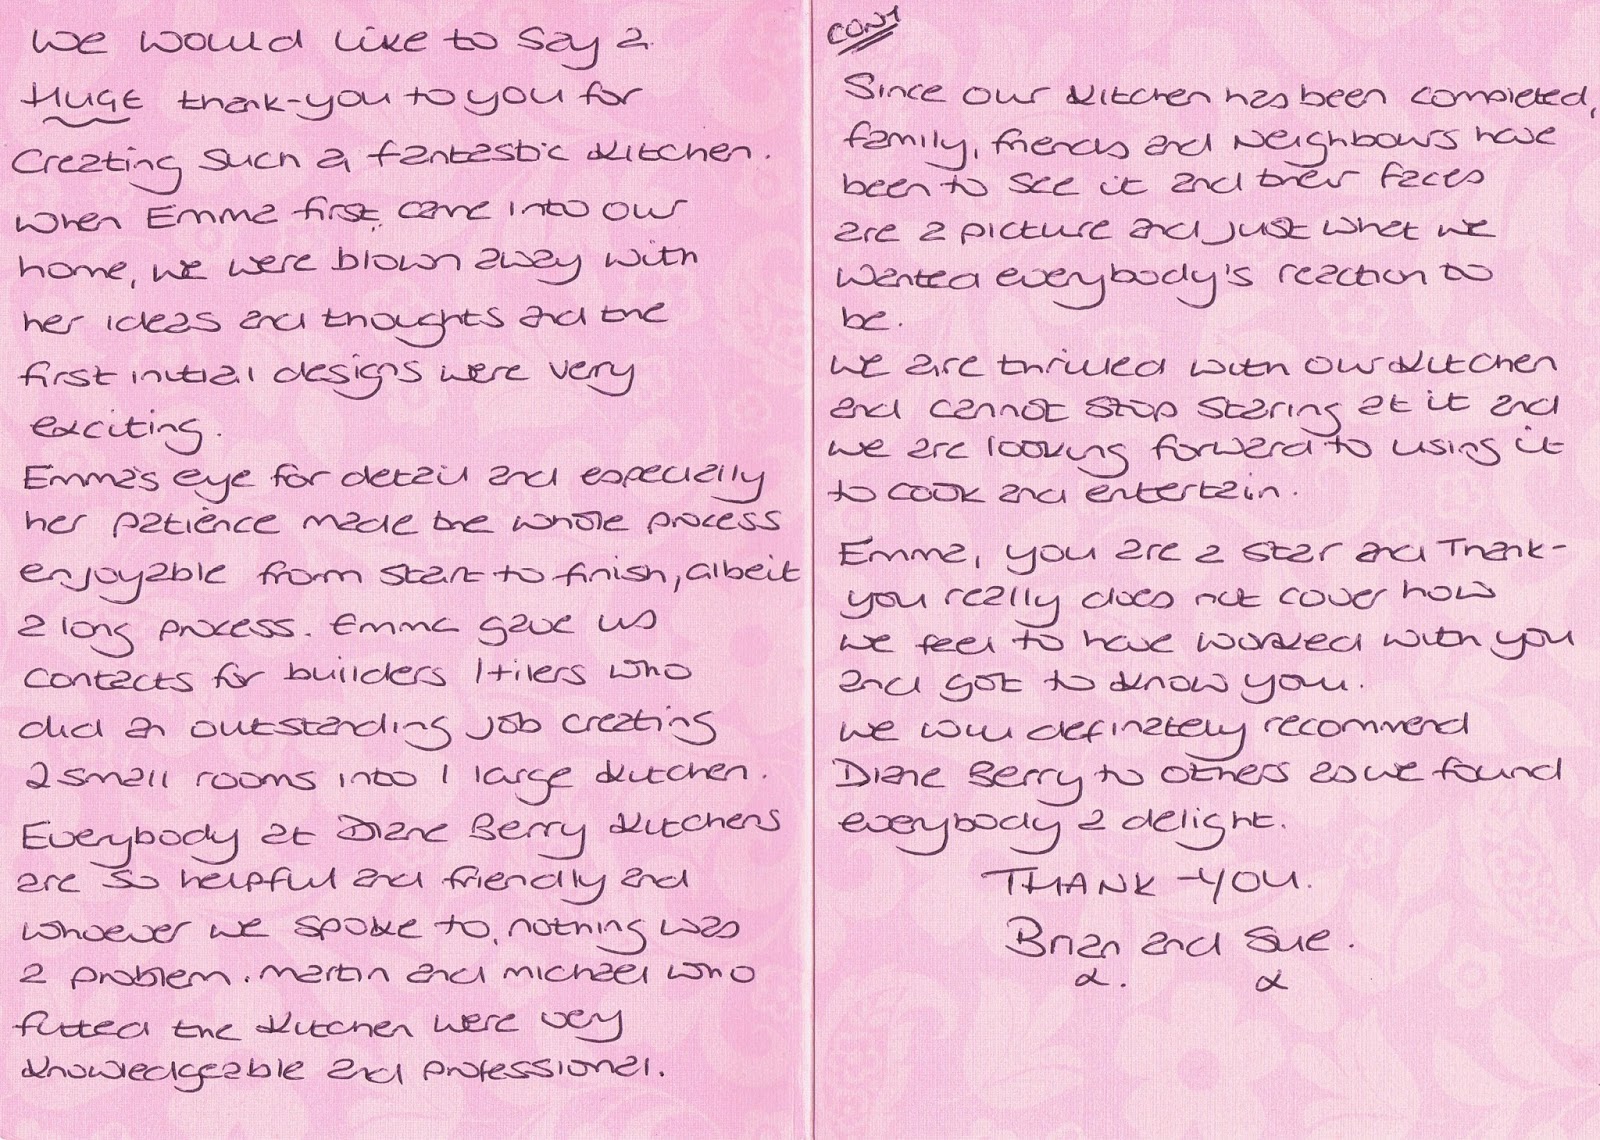 We would like to say a
HUGE thank-you to you for
Creating such a fantastic kitchen.
When Emma first came into our
home, we were blown away with
her ideas and thoughts and the
first initial designs were very
exciting.
Emma's eye for detail and especially
her patience made the whole process
enjoyable from start to finish, albeit
a long process. Emma gave us
contacts for builders / tilers who
did an outstanding job creating
2 small rooms into 1 large kitchen.
Everybody at Diane Berry Kitchens
are so helpful and friendly and
whoever we spoke to, nothing was
a problem. Martin and Michael who
fitted the kitchen were very
knowledgeable and professional.
CONT
Since our kitchen has been completed,
family, friends and neighbours have
been to see it and their faces
are a picture and just what we
wanted everybody's reaction to
be.
We are thrilled with our kitchen
and cannot stop staring at it and
we are looking forward to using it
to cook and entertain.
Emma, you are a star and Thank-
you really does not cover how
we feel to have worked with you
and got to know you.
We will definately recommend
Diane Berry to others as we found
everybody a delight.
THANK-YOU.
Brian and Sue.
x. x